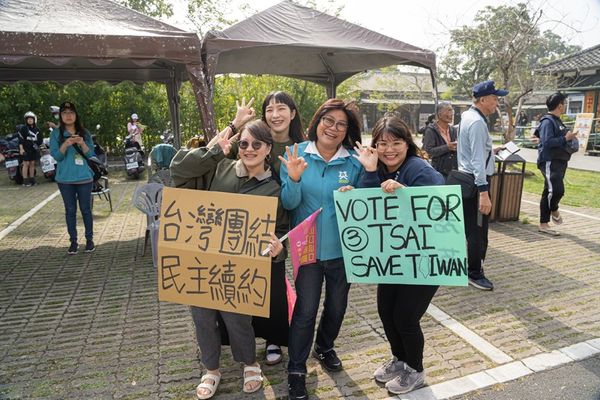 台灣團結
民主續約
VOTE FOR
③ TSAI
SAVE TAIWAN